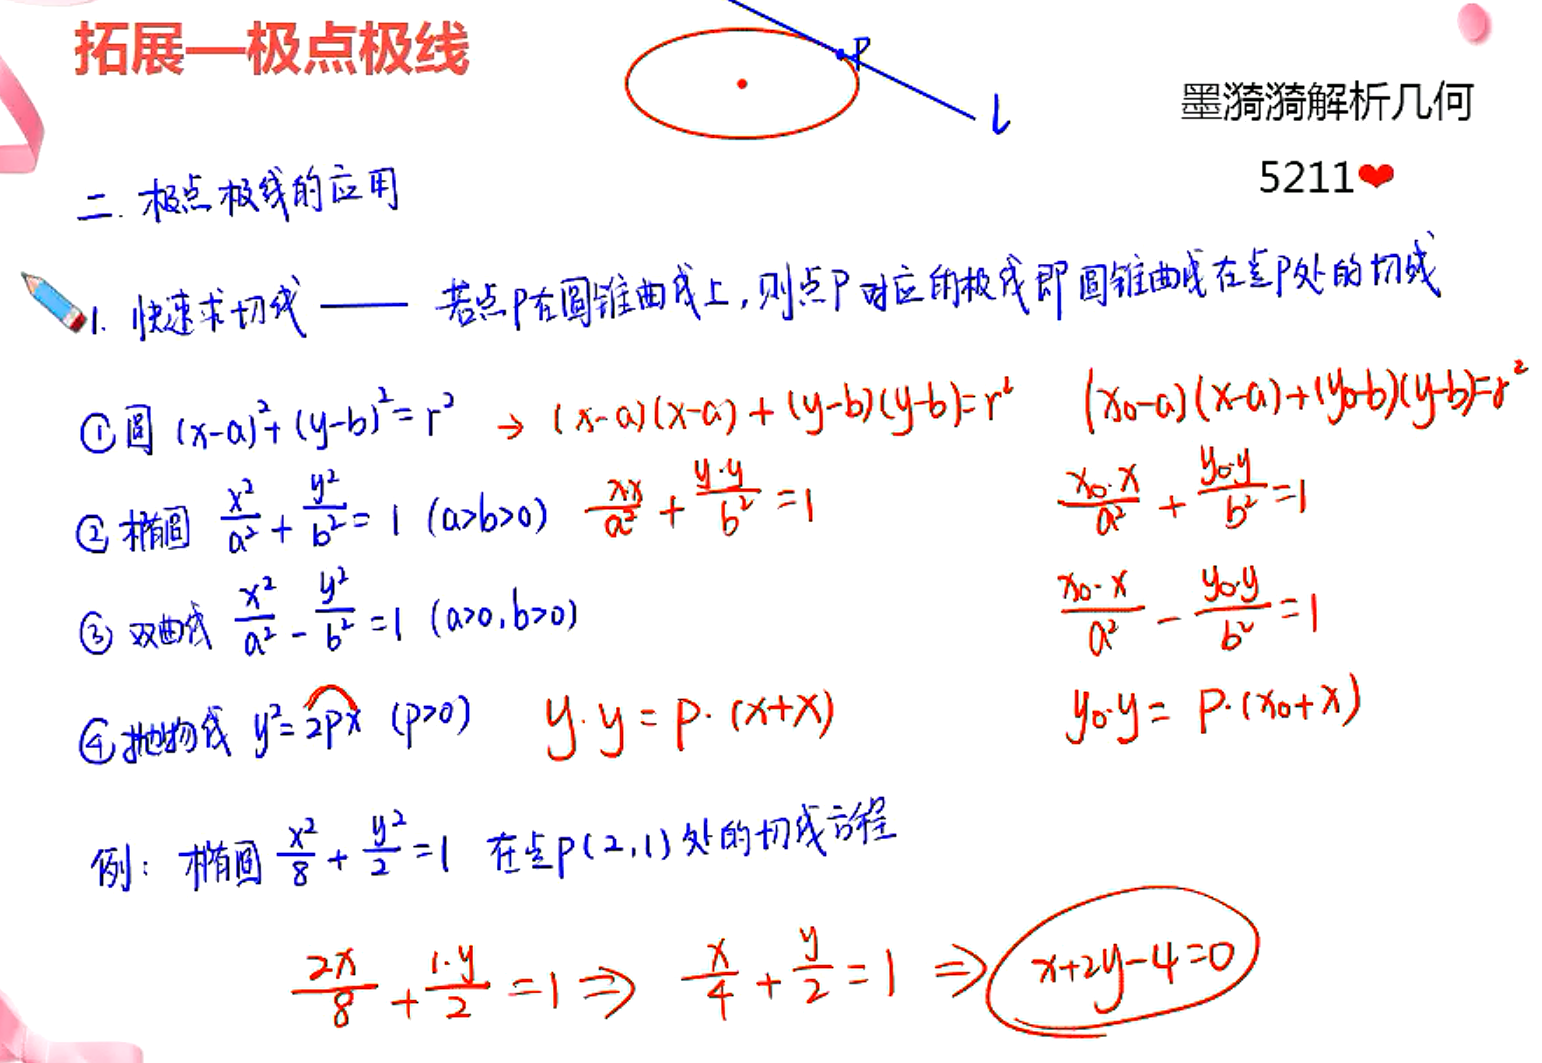 拓展—极点极线
P
l
墨漪漪解析几何
5211❤
二. 极点极线的应用
1. 快速求切线 —— 若点P在圆锥曲线上,则点P对应的极线即圆锥曲线在点P处的切线
① 圆 (x-a)²+(y-b)²=r² → (x-a)(x-a)+(y-b)(y-b)=r² (x₀-a)(x-a)+(y₀-b)(y-b)=r²
② 椭圆 x²/a² + y²/b² = 1 (a>b>0) x·x/a² + y·y/b² = 1 x₀·x/a² + y₀·y/b² = 1
③ 双曲线 x²/a² - y²/b² = 1 (a>0,b>0) x₀·x/a² - y₀·y/b² = 1
④ 抛物线 y²=2px (p>0) y·y=p·(x+x) y₀·y=p·(x₀+x)
例: 椭圆 x²/8 + y²/2 = 1 在点P(2,1)处的切线方程
2x/8 + 1·y/2 = 1 ⇒ x/4 + y/2 = 1 ⇒ x+2y-4=0